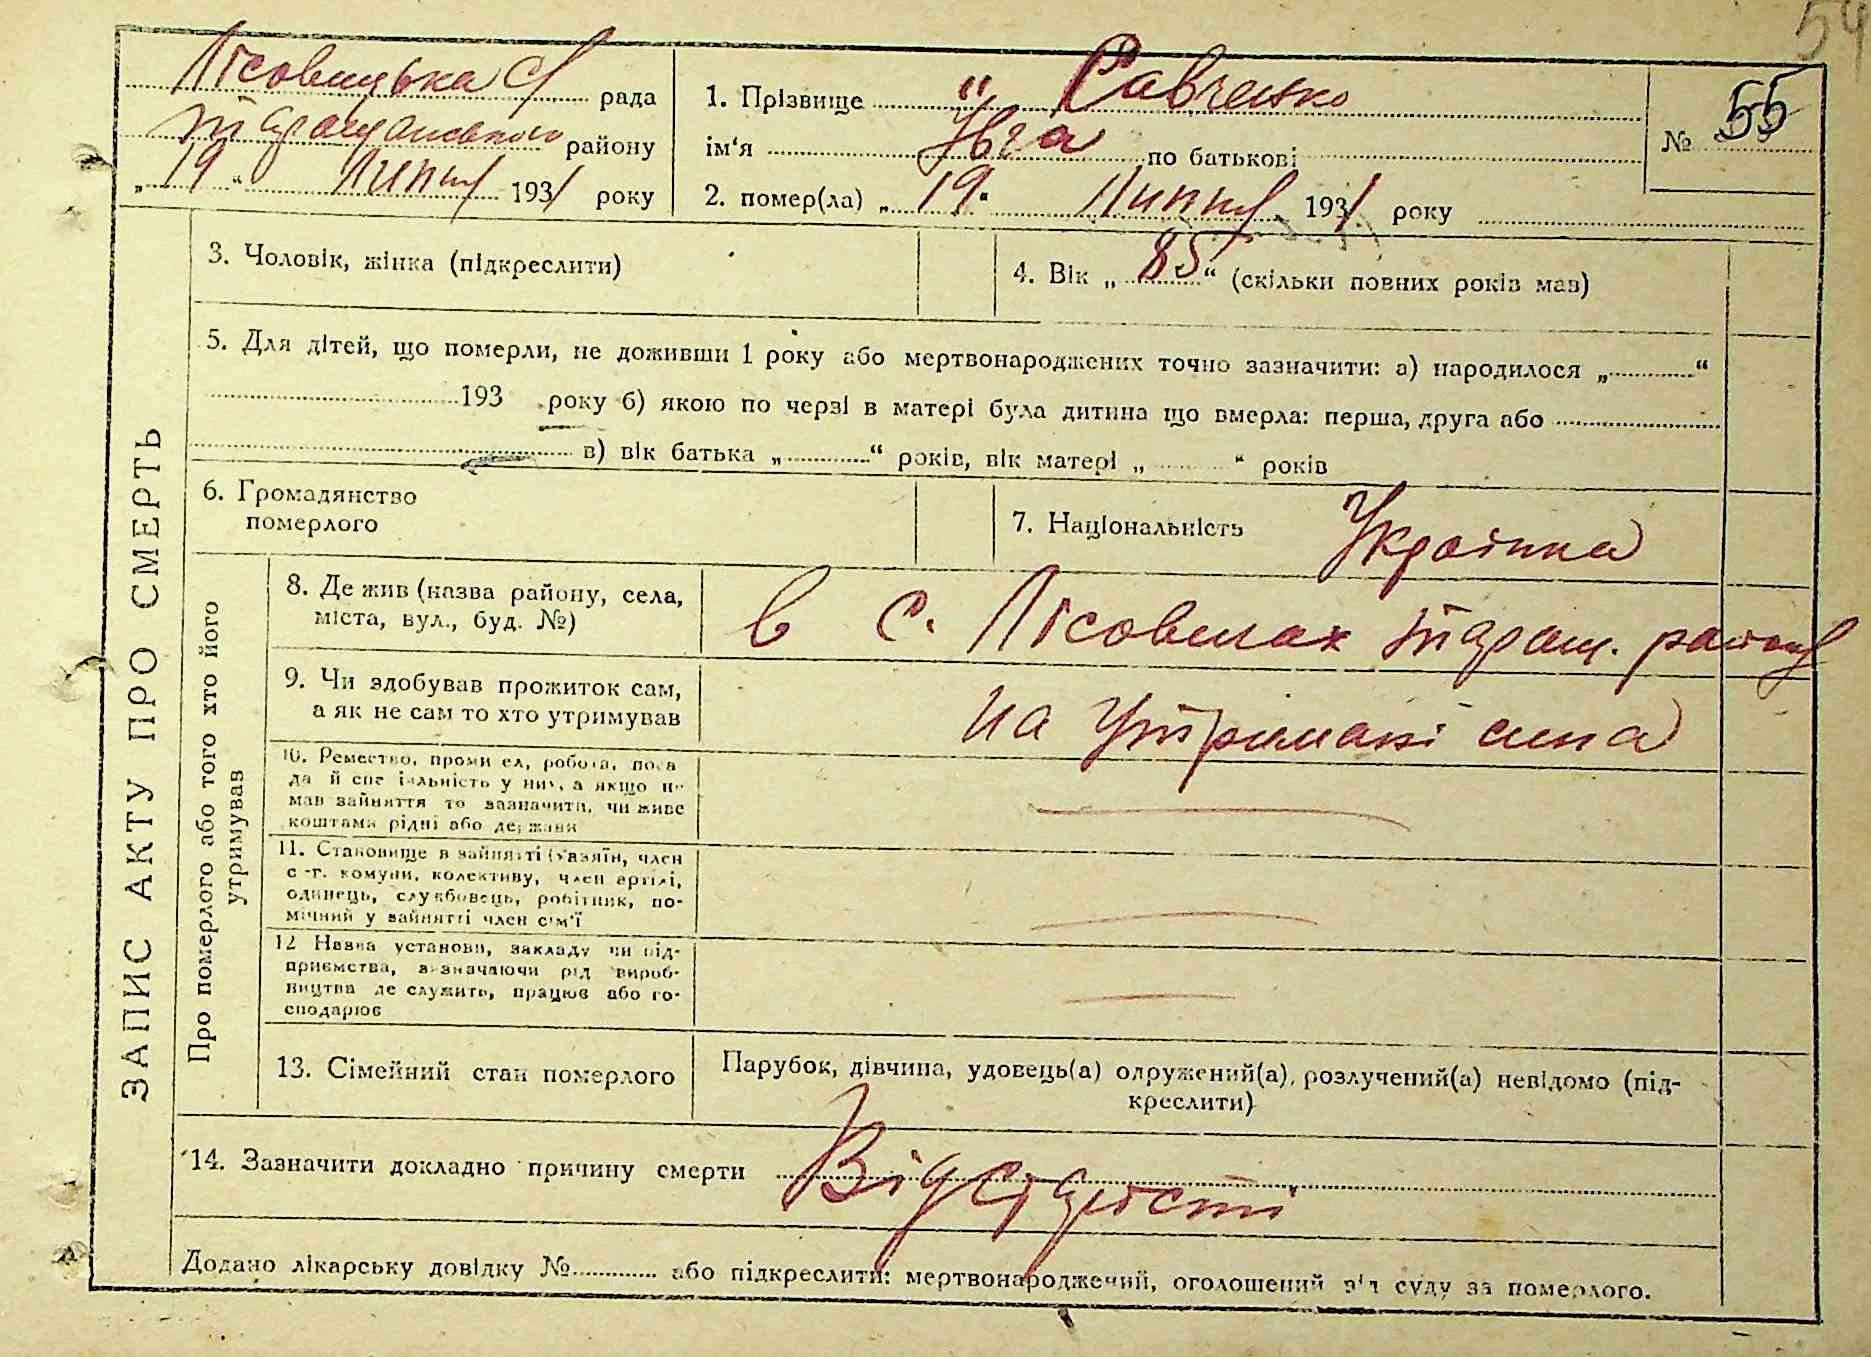 54
Лісовицька с/ рада
Таращанського району
„ 19 “ Липня 1931 року
1. Прізвище Савченко
ім‘я Ївга по батькові
2. помер(ла) „ 19 “ Липня 1931 року
№ 55
3. Чоловік, жінка (підкреслити)
4. Вік „ 85 “ (скільки повних років мав)
5. Для дітей, що померли, не доживши 1 року або мертвонароджених точно зазначити: а) народилося „ “
193 року б) якою по черзі в матері була дитина що вмерла: перша, друга або
в) вік батька „ “ років, вік матері „ “ років
6. Громадянство
померлого
7. Національність Українка
ЗАПИС АКТУ ПРО СМЕРТЬ
Про померлого або того хто його
утримував
8. Де жив (назва району, села,
міста, вул., буд. №)
в с. Лісовичах Таращ. району
9. Чи здобував прожиток сам,
а як не сам то хто утримував
на утримані сина
10. Ремество, промисел, робота, поса
да й спеціяльність у них, а якщо не
мав зайняття то зазначити, чи живе
коштами рідні або держави
11. Становище в зайнятті (хазяїн, член
с.-г. комуни, колективу, член артілі,
одинець, службовець, робітник, по-
мічний у зайнятті член сім'ї
12 Назва установи, закладу чи під-
приємства, зазначаючи рід вироб-
ництва де служить, працює або го-
сподарює
13. Сімейний стан померлого
Парубок, дівчина, удовець(а) одружений(а), розлучений(а) невідомо (під-
креслити)
14. Зазначити докладно причину смерти Від старості
Додано лікарську довідку № або підкреслити: мертвонароджений, оголошений від суду за померлого.